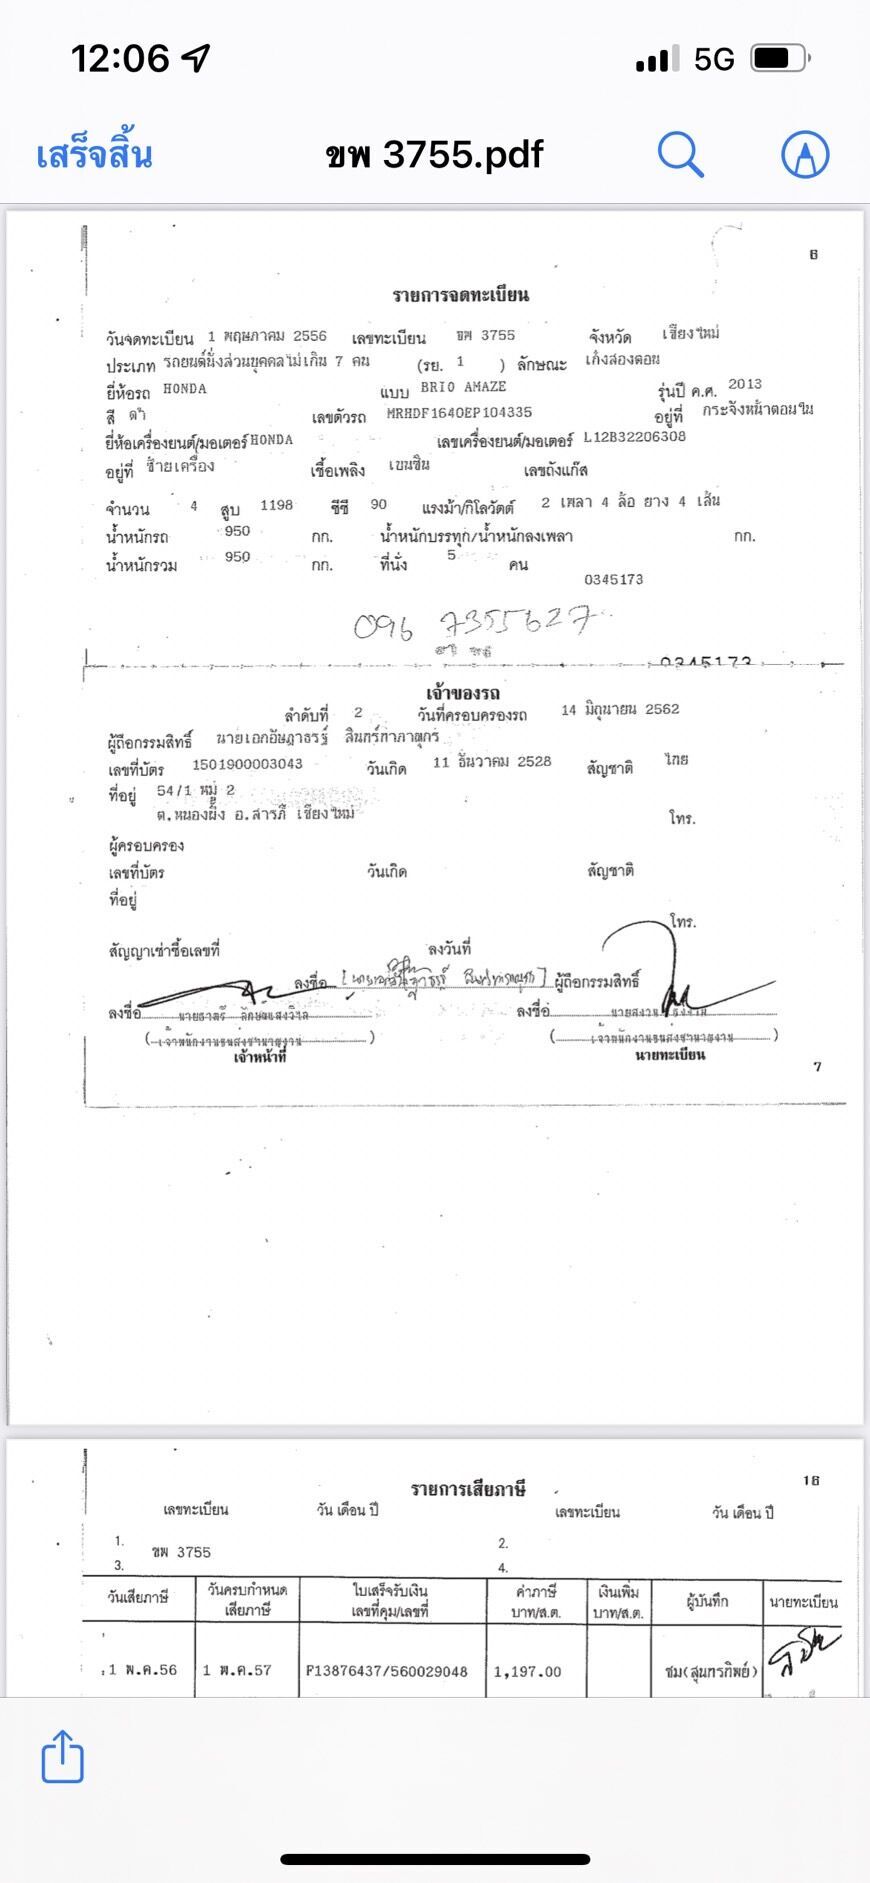 12:06 5G
เสร็จสิ้น ขพ 3755.pdf
6
รายการจดทะเบียน
วันจดทะเบียน 1 พฤษภาคม 2556 เลขทะเบียน ขพ 3755 จังหวัด เชียงใหม่
ประเภท รถยนต์นั่งส่วนบุคคลไม่เกิน 7 คน (รย. 1 ) ลักษณะ เก๋งสองตอน
ยี่ห้อรถ HONDA แบบ BRIO AMAZE รุ่นปี ค.ศ. 2013
สี ดำ เลขตัวรถ MRHDF1640EP104335 อยู่ที่ กระจังหน้าตอนใน
ยี่ห้อเครื่องยนต์/มอเตอร์ HONDA เลขเครื่องยนต์/มอเตอร์ L12B32206308
อยู่ที่ ซ้ายเครื่อง เชื้อเพลิง เบนซิน เลขถังแก๊ส
จำนวน 4 สูบ 1198 ซีซี 90 แรงม้า/กิโลวัตต์ 2 เพลา 4 ล้อ ยาง 4 เส้น
น้ำหนักรถ 950 กก. น้ำหนักบรรทุก/น้ำหนักลงเพลา กก.
น้ำหนักรวม 950 กก. ที่นั่ง 5 คน
0345173
096 7355627
0345173
เจ้าของรถ
ลำดับที่ 2 วันที่ครอบครองรถ 14 มิถุนายน 2562
ผู้ถือกรรมสิทธิ์ นายเอกอิษฎาธรฐ์
เลขที่บัตร 1501900003043 วันเกิด 11 ธันวาคม 2528 สัญชาติ ไทย
ที่อยู่ 54/1 หมู่ 2
ต.หนองผึ้ง อ.สารภี เชียงใหม่ โทร.
ผู้ครอบครอง
เลขที่บัตร วันเกิด สัญชาติ
ที่อยู่
โทร.
สัญญาเช่าซื้อเลขที่ ลงวันที่
ลงชื่อ ผู้ถือกรรมสิทธิ์
ลงชื่อ นายธาตรี ลงชื่อ
(เจ้าพนักงานขนส่งชำนาญงาน) (เจ้าพนักงานขนส่งชำนาญงาน)
เจ้าหน้าที่ นายทะเบียน
7
16
รายการเสียภาษี
เลขทะเบียน วัน เดือน ปี เลขทะเบียน วัน เดือน ปี
1. ขพ 3755 2.
3. 4.
วันเสียภาษี วันครบกำหนดเสียภาษี ใบเสร็จรับเงิน เลขที่คุม/เลขที่ ค่าภาษี บาท/ส.ต. เงินเพิ่ม บาท/ส.ต. ผู้บันทึก นายทะเบียน
1 พ.ค.56 1 พ.ค.57 F13876437/560029048 1,197.00 ชม(สุนทรทิพย์)